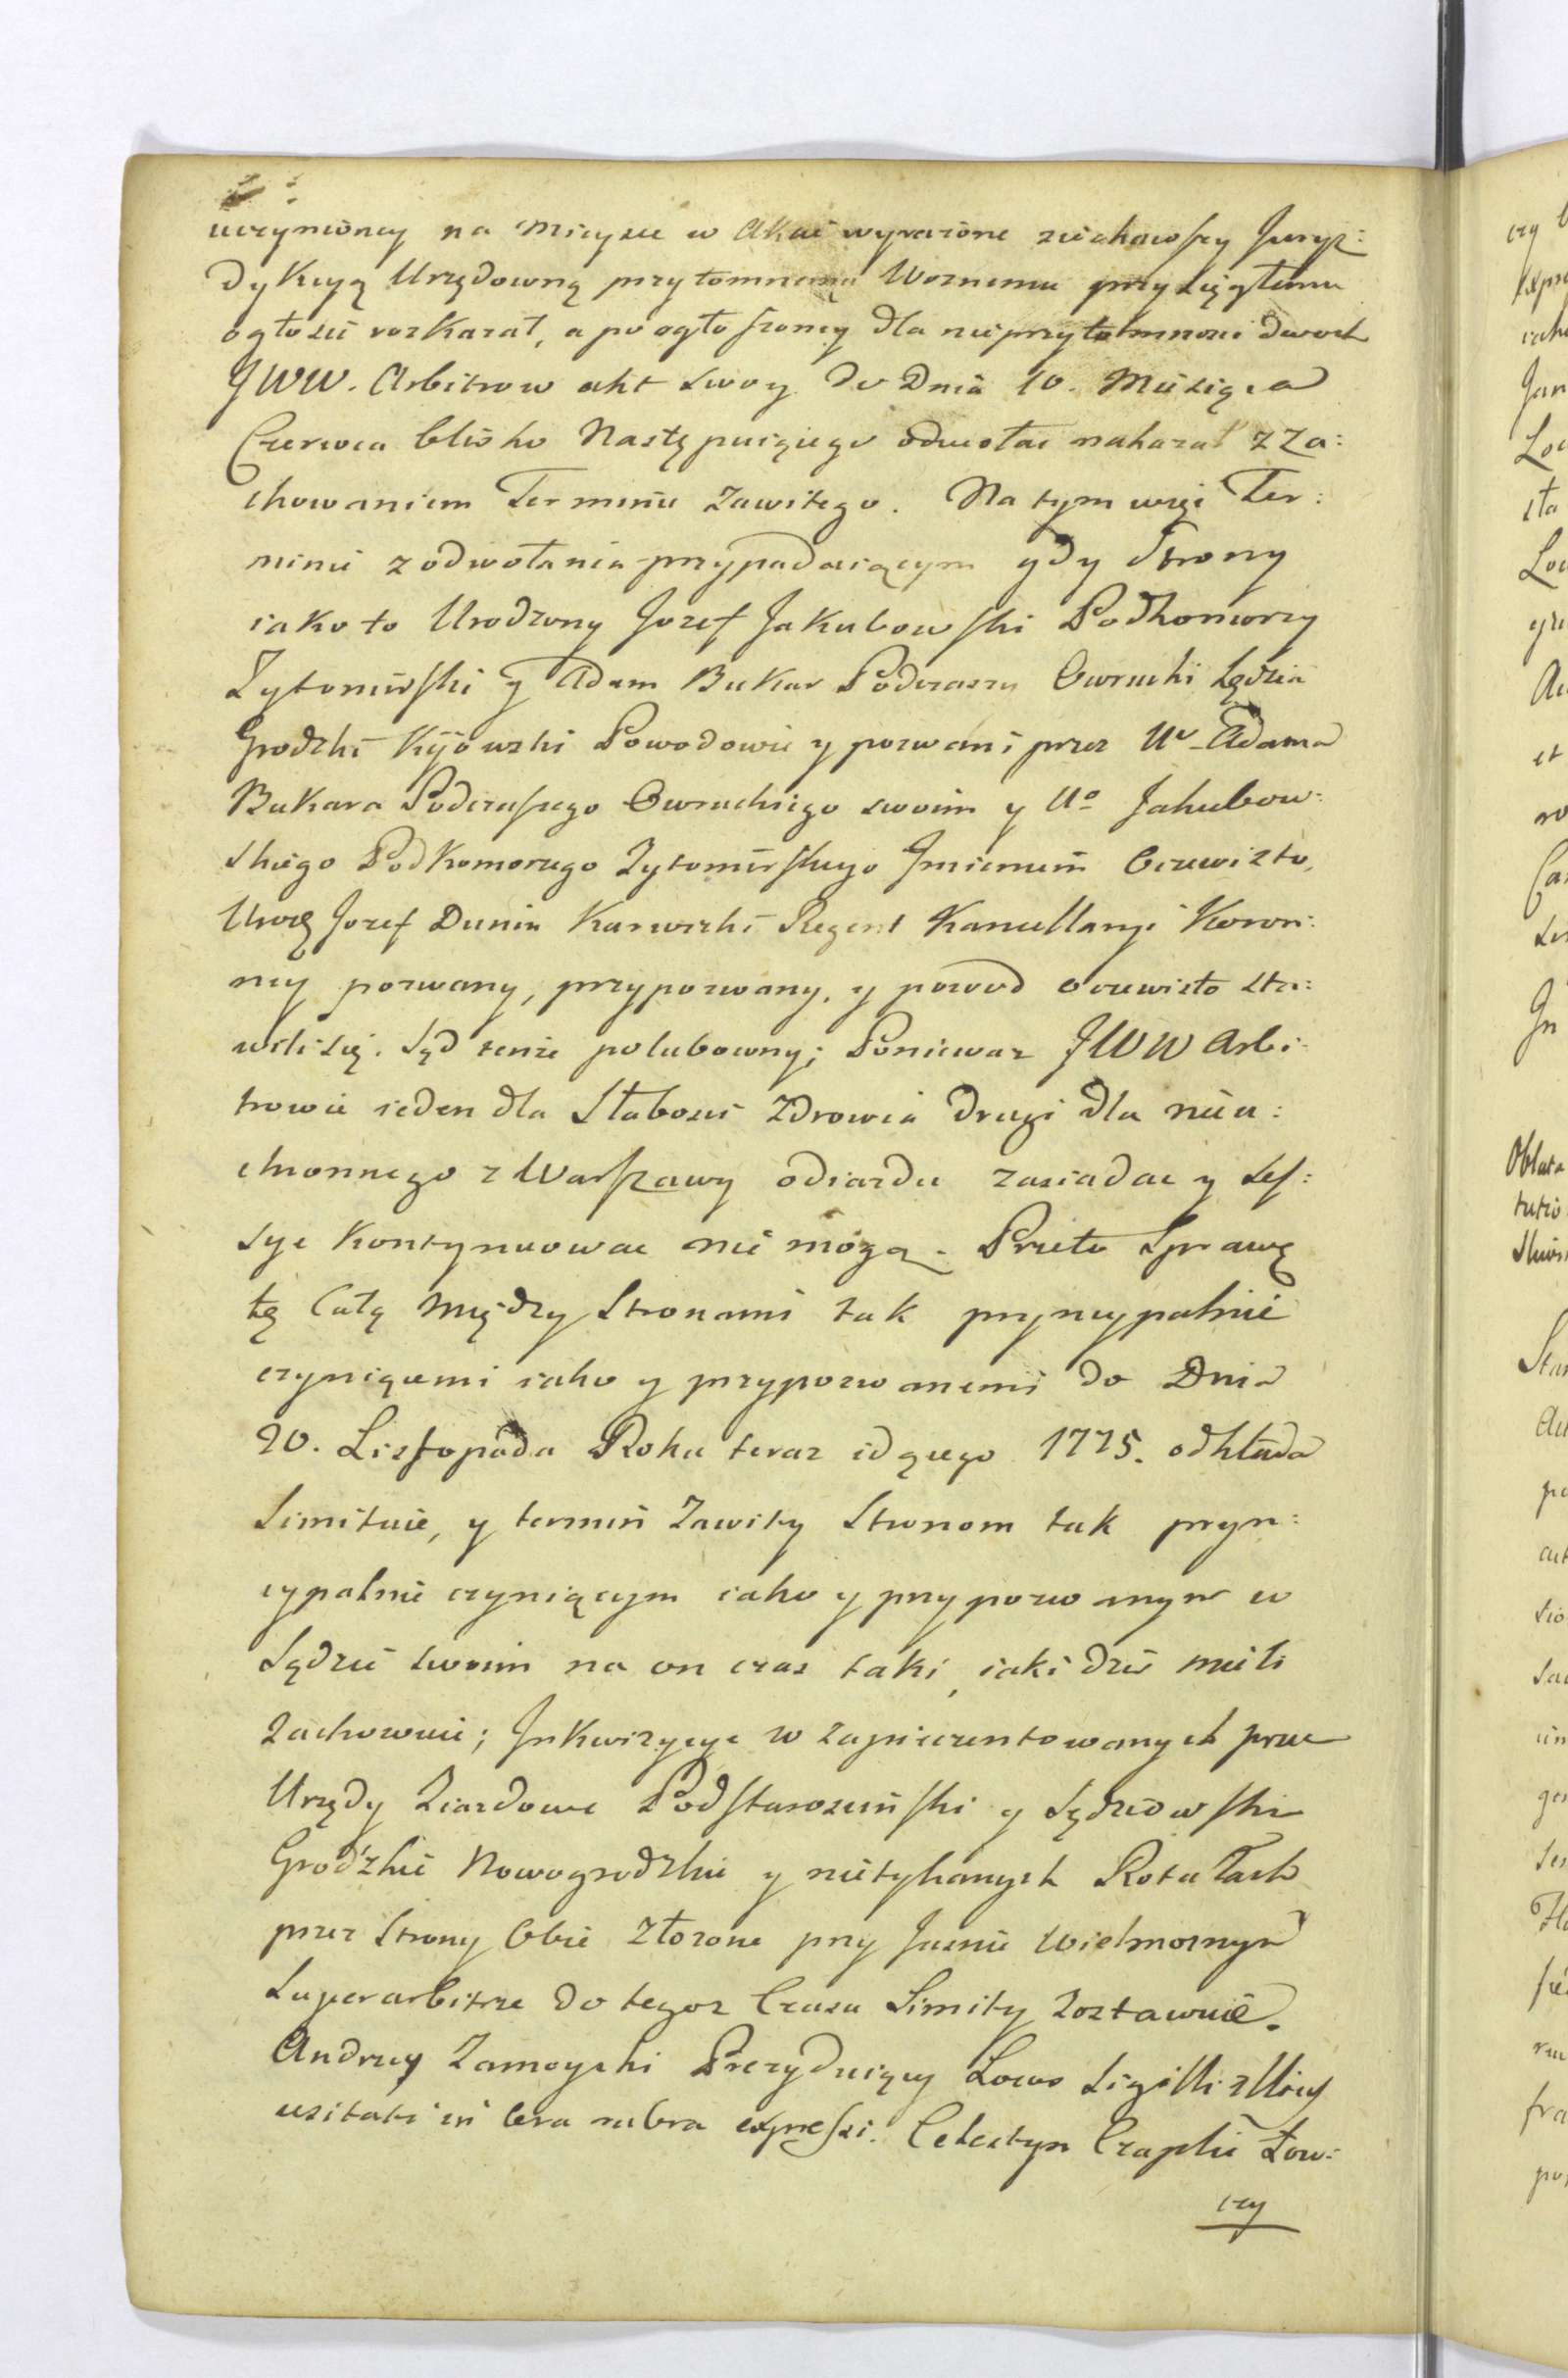 uczynioney na mieysce w Akcie wyrażone ziechawszy Juryz:
dykcyą Urzędowną przytomnemu Woznemu przysięgłemu
ogłosić rozkazał, a po ogłoszoney dla nieprzytomnosci dwoch
JWW. Arbitrow akt swoy do Dnia 10. Miesiąca
Czerwca blisko Następuiącego odwołac nakazał z Za:
chowaniem Terminu Zawitego. Na tym więc Ter:
minie z odwołania przypadaiącym gdy Strony
iako to Urodzony Jozef Jakubowski Podkomorzy
Zytomirski y Adam Bukar Podczaszy Owrucki Sędzia
Grodzki Kijowski Powodowie y pozwani przez Uo Adama
Bukara Podczaszego Owruckiego swoim y Uo Jakubow:
skiego Podkomorzego Zytomirskiego Jmieniem Oczewisto,
Urodz Jozef Dunin Karwicki Regent Kancellaryi Koron:
ney pozwany, przypozwany, y powod oczewisto sta:
wili się. Sąd tenże polubowny; Poniewaz JWW Arbi:
trowie ieden dla Słabosci Zdrowia drugi dla nieu:
chronnego z Warszawy odiazdu zasiadac y Ses:
sye kontynuowac nie mogą. Przeto Sprawę
tę Całą między Stronami tak pryncypalnie
czyniącemi iako y przypozwanemi do Dnia
20. Listopada Roku teraz idącego 1775. odkłada
Limituie, y termin Zawity Stronom tak pryn:
cypalnie czyniącym iako y przypozwanym w
Sądzie swoim na on czas taki, iaki dzis mieli
Zachowuie; Jnkwizycye w zapieczentowanych przez
Urzędy Ziazdowe Podstarosciński y Sędziowski
Grodzkie Nowogrodzkie y nietykanych Rotułach
przez Strony Obie złozone przy Jasnie Wielmoznym
Superarbitrze do tegoz Czasu Limity Zostawuie.
Andrzey Zamoyski Prezyduiący Locus Sigilli illius
usitati in Cera rubra expressi. Celestyn Czaplic Łow:
czy